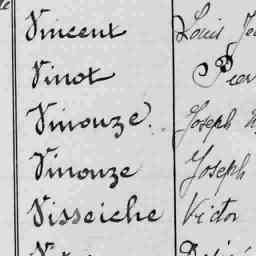 Vincent Louis
Vinot
Vinouze. Joseph
Vinouze Joseph
Visseiche Victor